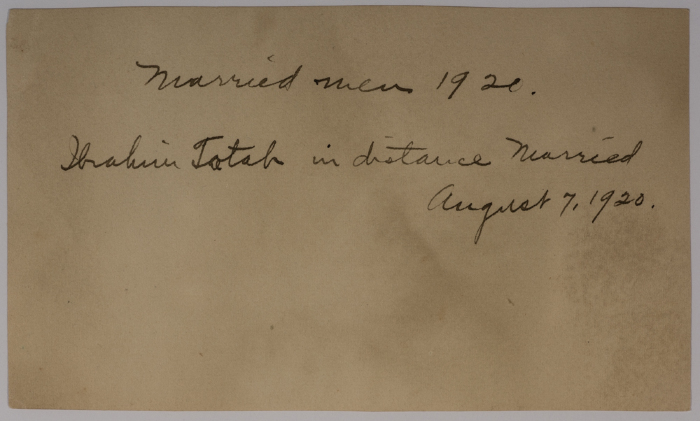 Married men 1920.
Ibrahim Totah in distance Married
August 7, 1920.